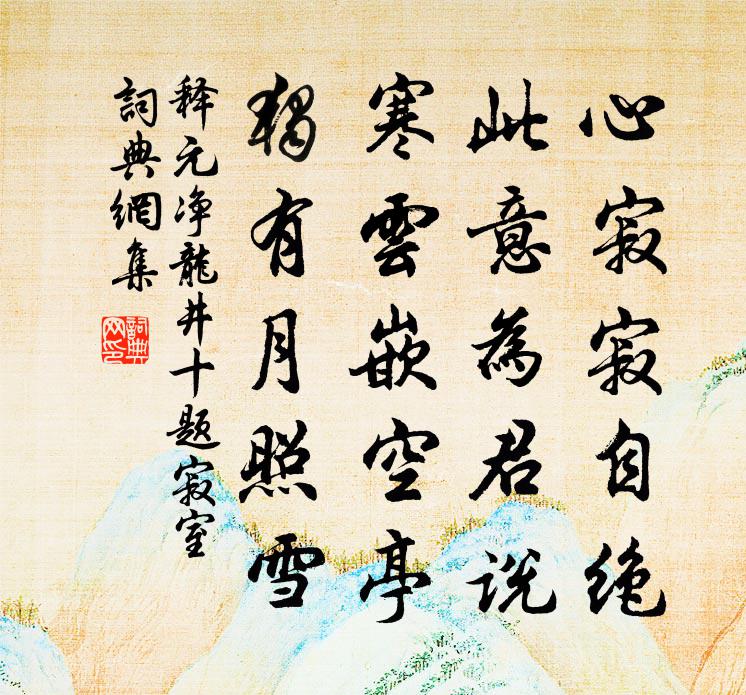 心寂寂自绝
此意為君说
寒雲嵌空亭
独有月照雪
释元净龍井十题寂室
詞典網集
詞典
网印